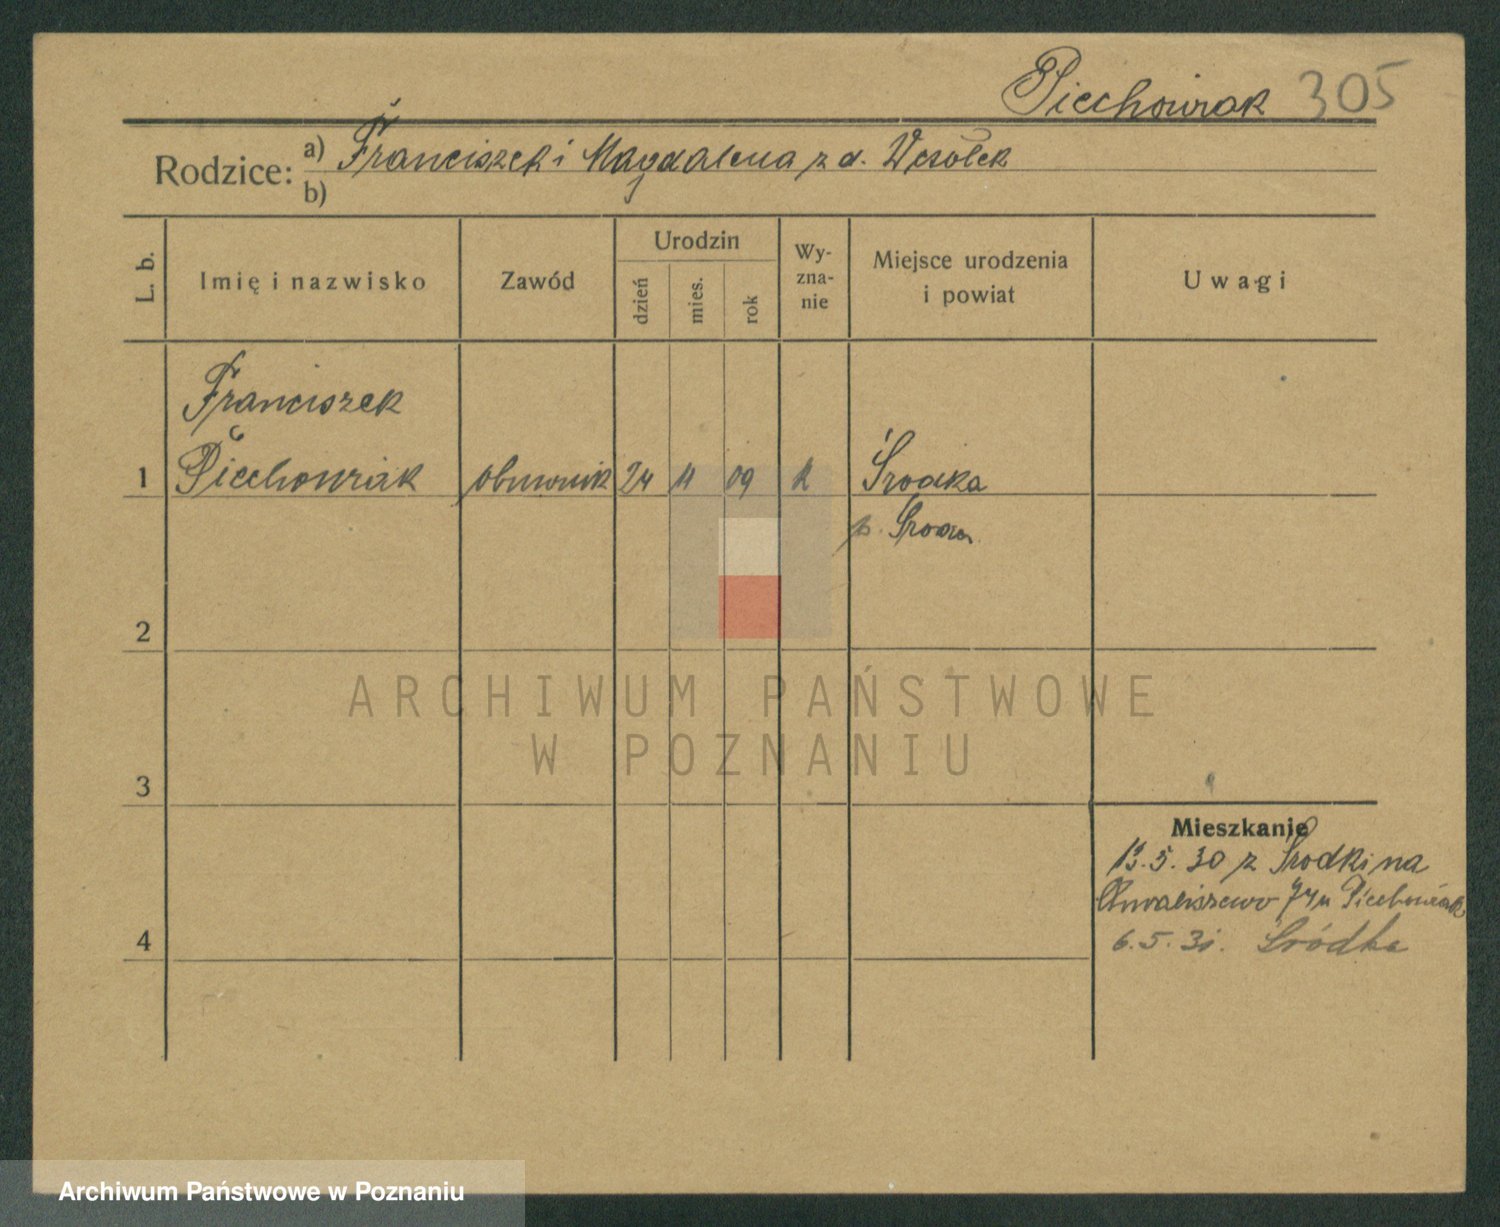 Piechowiak 305
Rodzice: a) Franciszek i Magdalena z d. Wesołek
b)
L. b.
Imię i nazwisko
Zawód
Urodzin
dzień
mies.
rok
Wy-
zna-
nie
Miejsce urodzenia
i powiat
Uwagi
Franciszek
1 Piechowiak obuwnik 24 11 09 k Środka
p. Środa
2
ARCHIWUM PAŃSTWOWE
W POZNANIU
3
Mieszkanie
13.5.30 z Środki na
Chwaliszewo 74 u Piechowiak
4
6.5.31. Śródka
Archiwum Państwowe w Poznaniu